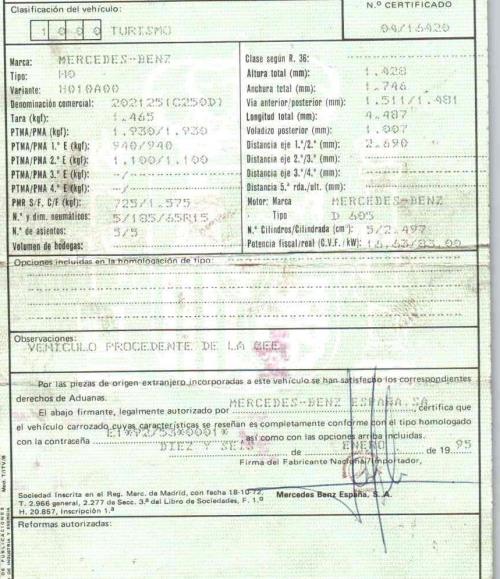 Clasificación del vehículo:
N.º CERTIFICADO
1000 TURISMO
04/16420
Marca: MERCEDES-BENZ
Tipo: MO
Variante: H010A00
Denominación comercial: 202125I(C250D)
Tara (kgf): 1.465
PTMA/PMA (kgf): 1.930/1.930
PTMA/PMA 1.º E (kgf): 940/940
PTMA/PMA 2.º E (kgf): 1.100/1.100
PTMA/PMA 3.º E (kgf): -/-
PTMA/PMA 4.º E (kgf): -/-
PMR S/F, C/F (kgf): 725/1.575
N.º y dim. neumáticos: 5/185/65R15
N.º de asientos: 5/5
Volumen de bodegas:
Clase según R. 36:
Altura total (mm): 1.428
Anchura total (mm): 1.746
Vía anterior/posterior (mm): 1.511/1.481
Longitud total (mm): 4.487
Voladizo posterior (mm): 1.007
Distancia eje 1.º/2.º (mm): 2.690
Distancia eje 2.º/3.º (mm):
Distancia eje 3.º/4.º (mm):
Distancia 5.ª rda./últ. (mm):
Motor: Marca MERCEDES-BENZ
Tipo D 605
N.º Cilindros/Cilindrada (cm³): 5/2.497
Potencia fiscal/real (C.V.F. / kW): 16.63/83.00
Opciones incluidas en la homologación de tipo:
Observaciones:
VEHICULO PROCEDENTE DE LA CEE
Por las piezas de origen extranjero incorporadas a este vehículo se han satisfecho los correspondientes
derechos de Aduanas.
El abajo firmante, legalmente autorizado por MERCEDES-BENZ ESPAÑA,SA, certifica que
el vehículo carrozado cuyas características se reseñan es completamente conforme con el tipo homologado
con la contraseña E1*92/53*0001*, así como con las opciones arriba incluidas.
DIEZ Y SEIS de ENERO de 19 95
Firma del Fabricante Nacional/Importador,
Sociedad Inscrita en el Reg. Merc. de Madrid, con fecha 18-10-72,
T. 2.966 general, 2.277 de Secc. 3.ª del Libro de Sociedades, F. 1.º
H. 20.857, Inscripción 1.ª
Mercedes Benz España, S. A.
Reformas autorizadas: